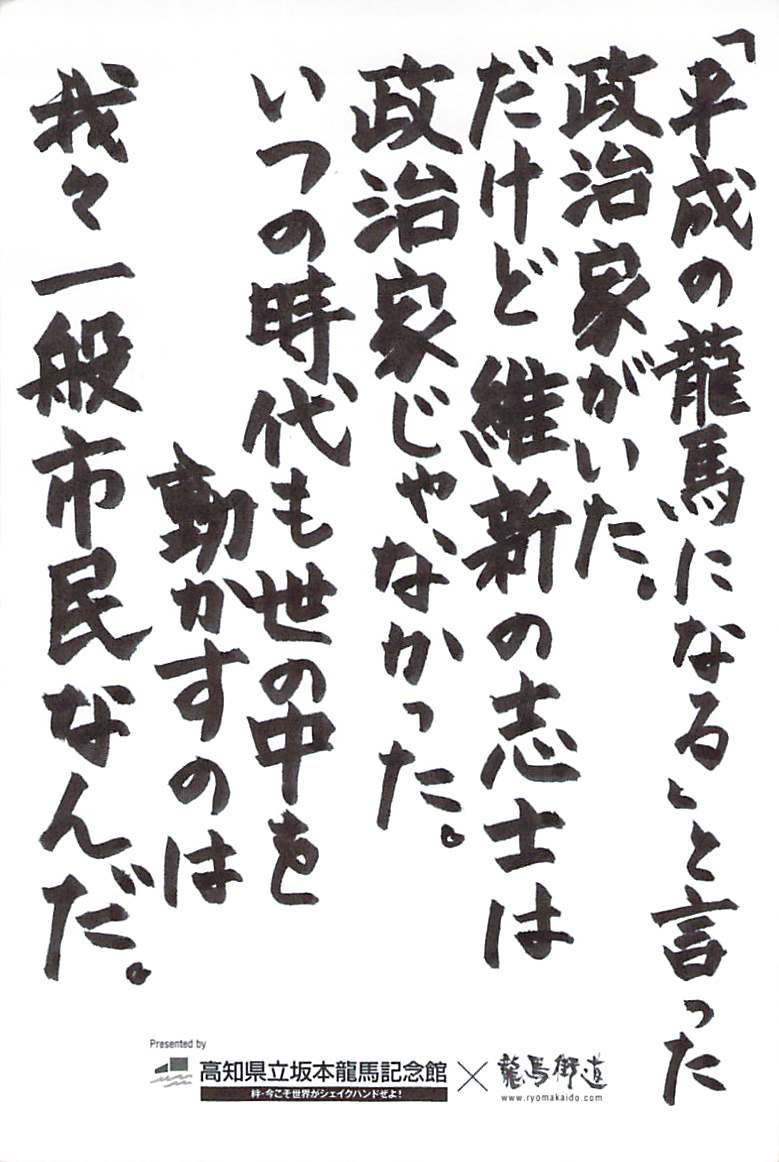 「平成の龍馬になる」と言った
政治家がいた。
だけど維新の志士は
政治家じゃなかった。
いつの時代も世の中を
動かすのは
我々一般市民なんだ。
Presented by
高知県立坂本龍馬記念館×龍馬街道
絆・今こそ世界がシェイクハンドぜよ!
www.ryomakaido.com